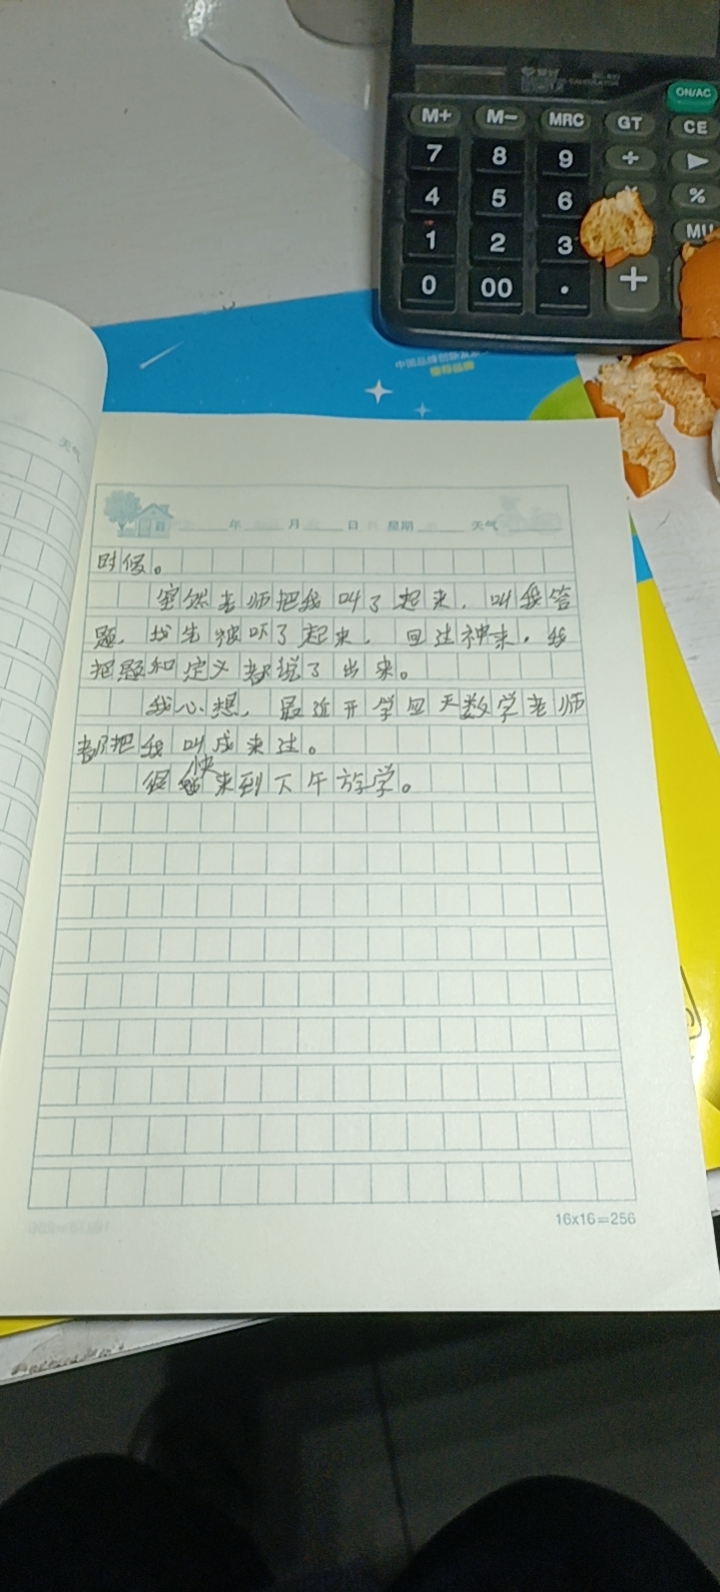 ON/AC
M+ M− MRC GT CE
7 8 9 ÷ ▶
4 5 6 %
1 2 3 MU
0 00 . +
推荐品牌
天气
年 月 日 星期 天气
时候。
突然老师把我叫了起来，叫我答
题，我先被吓了起来，回过神来，我
把题和定义都说了出来。
我心想，最近开学四天数学老师
都把我叫成来过。
很快来到下午放学。
16x16=256